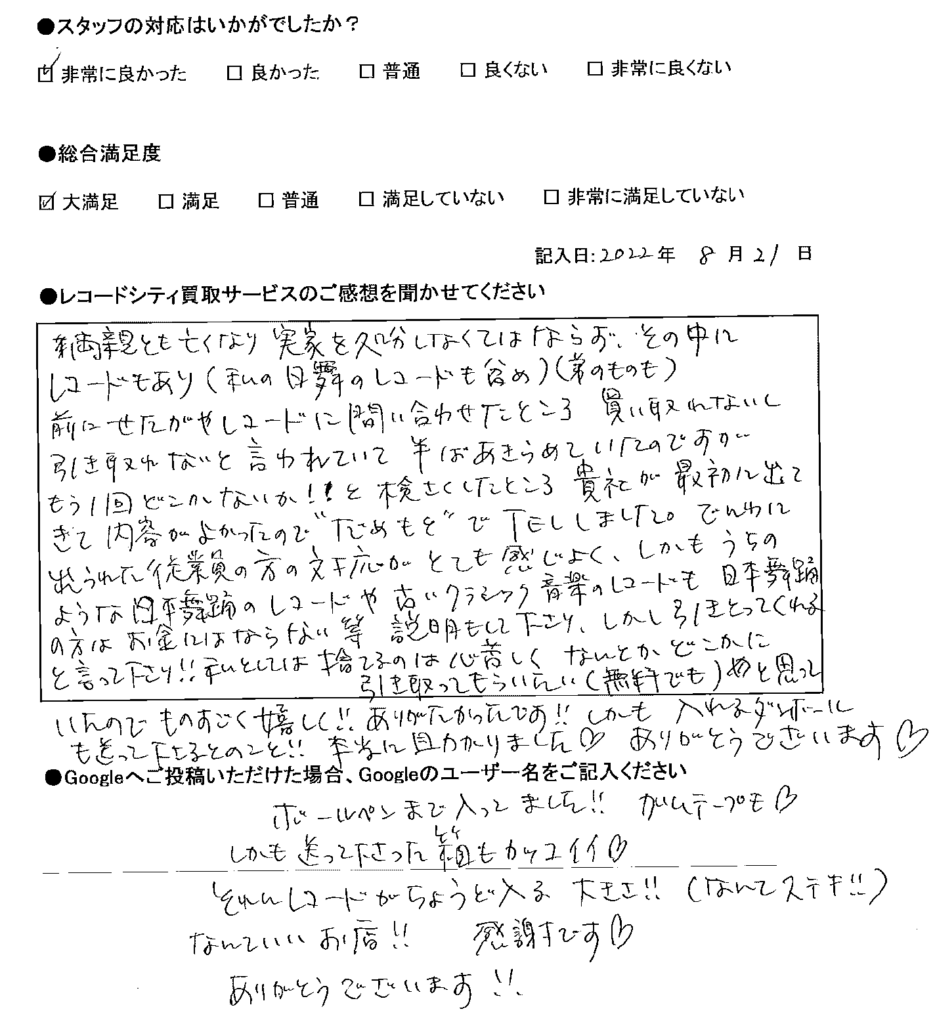 ●スタッフの対応はいかがでしたか？
☑ 非常に良かった　□ 良かった　□ 普通　□ 良くない　□ 非常に良くない
●総合満足度
☑ 大満足　□ 満足　□ 普通　□ 満足していない　□ 非常に満足していない
記入日:2022年 8月21日
●レコードシティ買取サービスのご感想を聞かせてください
両親とも亡くなり 実家を処分しなくてはならず、その中に
レコードもあり(私の日舞のレコードも含め)(弟のものも)
前にせたがやレコードに問い合わせたところ 買い取れないし
引き取れないと言われていて 半ばあきらめていたのですが
もう1回どこかないか!!と 検さくしたところ 貴社が最初に出て
きて 内容がよかったので"だめもと"で TELしました。でんわに
出られた従業員の方の対応が とても感じよく、しかも うちの
ような日本舞踊のレコードや 古いクラシック音楽のレコードも 日本舞踊
の方は お金にはならない等 説明もして下さり、しかし引きとってくれる
と言って下さり!! 私としては 捨てるのは心苦しく なんとか どこかに
引き取ってもらいたい(無料でも)と思って
いたので ものすごく嬉しく!! ありがたかったです!! しかも 入れるダンボール
も送って下さるとのこと!! 本当に助かりました♡ ありがとうございます♡
●Googleへご投稿いただけた場合、Googleのユーザー名をご記入ください
ボールペンまで入ってました!! ガムテープも♡
しかも 送って下さった 箱もカッコイイ♡
それにレコードがちょうど入る 大きさ!! (なんてステキ!!)
なんていいお店!! 感謝です♡
ありがとうございます!!